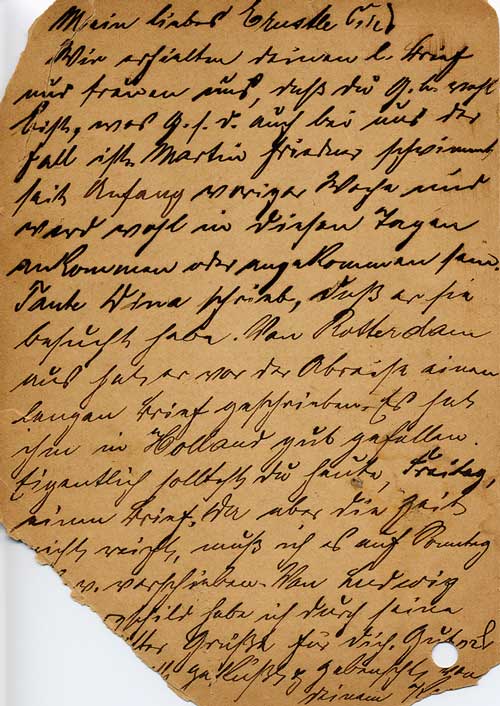 Mein liebes Ernstle
Wir erhielten deinen l. Brief
und freuen uns, daß du G. L. wohl
bist, was G. s. d. auch bei uns der
Fall ist. Martin Friedner schwimmt
seit Anfang voriger Woche und
wird wohl in diesen Tagen
ankommen oder angekommen sein.
Tante Dina schrieb, daß er sie
besucht habe. Von Rotterdam
aus hat er vor der Abreise einen
langen Brief geschrieben. Es hat
ihm in Holland gut gefallen.
Eigentlich solltest du heute, Freitag,
einen Brief. Da aber die Zeit
nicht reicht, muß ich es auf Sonntag
v. verschieben. Von Ludwig
schild habe ich durch seine
Grüße für dich. Gut
geküßt & gebenscht von
deinem